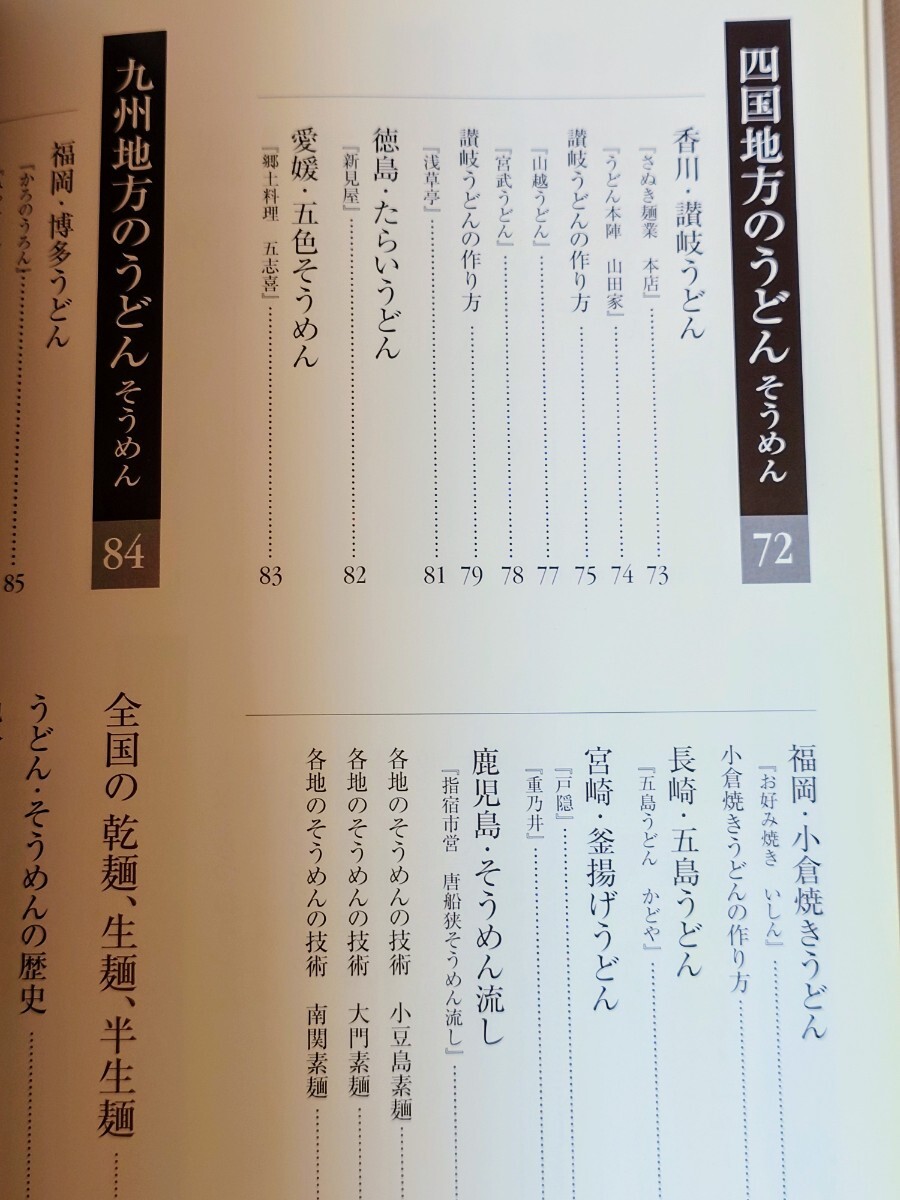 四国地方のうどん そうめん 72
香川・讃岐うどん
『さぬき麺業 本店』 73
『うどん本陣 山田家』 74
讃岐うどんの作り方 75
『山越うどん』 77
『宮武うどん』 78
讃岐うどんの作り方 79
『浅草亭』 81
徳島・たらいうどん
『新見屋』 82
愛媛・五色そうめん
『郷土料理 五志喜』 83
九州地方のうどん そうめん 84
福岡・博多うどん
『かろのうろん』 85
福岡・小倉焼きうどん
『お好み焼き いしん』
小倉焼きうどんの作り方
長崎・五島うどん
『五島うどん かどや』
宮崎・釜揚げうどん
『戸隠』
『重乃井』
鹿児島・そうめん流し
『指宿市営 唐船峡そうめん流し』
各地のそうめんの技術 小豆島素麺
各地のそうめんの技術 大門素麺
各地のそうめんの技術 南関素麺
全国の 乾麺、生麺、半生麺
うどん・そうめんの歴史